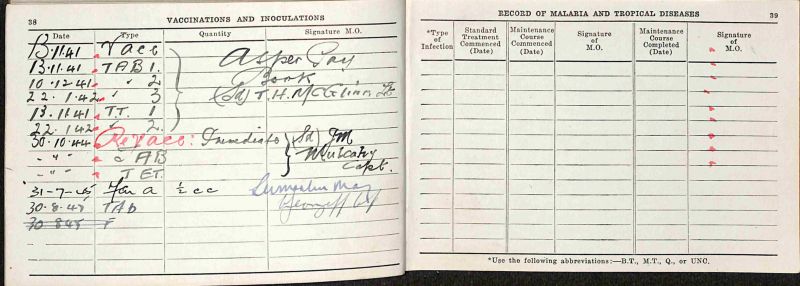 38 VACCINATIONS AND INOCULATIONS
Date Type Quantity Signature M.O.
13.11.41 Vacc As per Pay
13.11.41 T A B 1. Book
10.12.41 " 2
22.1.42 " 3 (Sd) T.H. McGlinn
13.11.41 T.T. 1
22.1.42 " 2.
30.10.44 Re Vacc: Immediate (Sd) JM
- " - T A B Mulcahy
- " - T ET. Capt.
31-7-45 ½ cc
30.8.45 TAB
30.8.45 T
RECORD OF MALARIA AND TROPICAL DISEASES 39
*Type of Infection Standard Treatment Commenced (Date) Maintenance Course Commenced (Date) Signature of M.O. Maintenance Course Completed (Date) Signature of M.O.
*Use the following abbreviations:—B.T., M.T., Q., or UNC.